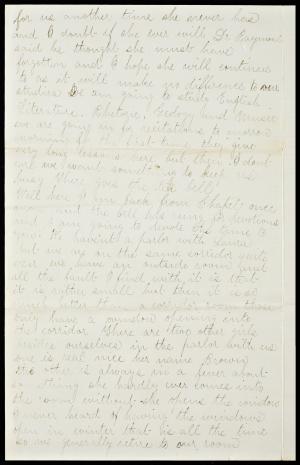 for us another time she never has
and I doubt if she ever will. Dr Raymond
said he thought she must have
forgotten and I hope she will continue
to as it will make no difference to our
studies. We am going to study English
Literature, Rhetoric, Geology and Music
we are going in for recitations to morrow
morning for the first time they give
very long lessons here but then I dont
care we want something to keep us
busy. There goes the tea bell!
Well here I am back from Chapel once
more and the bell has rung for devotions
and I am going to devote this time to
you. We havent a parlor with Laura
but we are on the same corridor quite
near we have an outside room and
all the fault I find with it is that
it is rather small but then it is so
much better than a corridor room those
only have a window opening into
the corridor. There are two other girls
besides ourselves in the parlor with us
one is real nice her name Brown
the other is always in a fever about
something she hardly ever comes into
the room without she opens the window
I never heard of having the windows
open in winter that is all the time
so we generally retire to our room